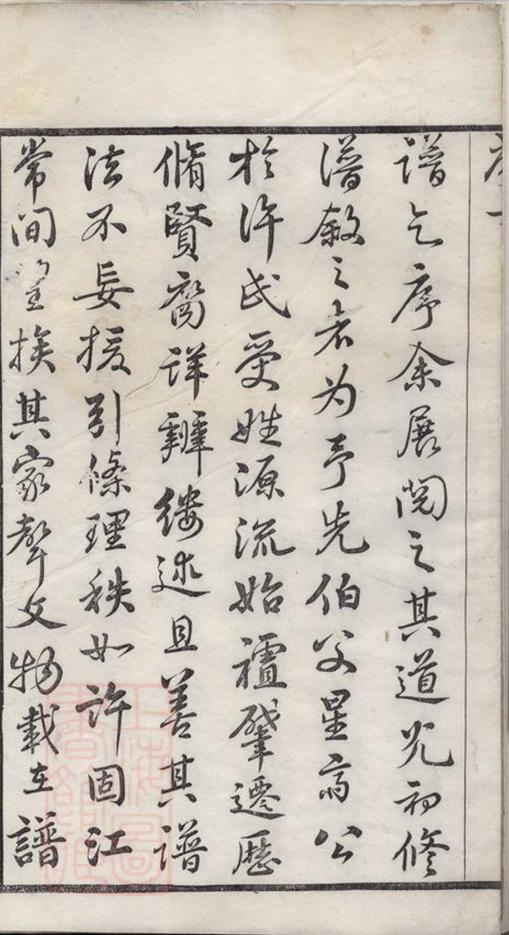 譜乞序余展閱之其道光初修
譜敘之者为予先伯父星斋公
於许氏受姓源流始禋肇遷歷
脩賢裔详辨缕述且善其譜
法不妄援引條理秩如許固江
常间望族其家聲文物載在譜